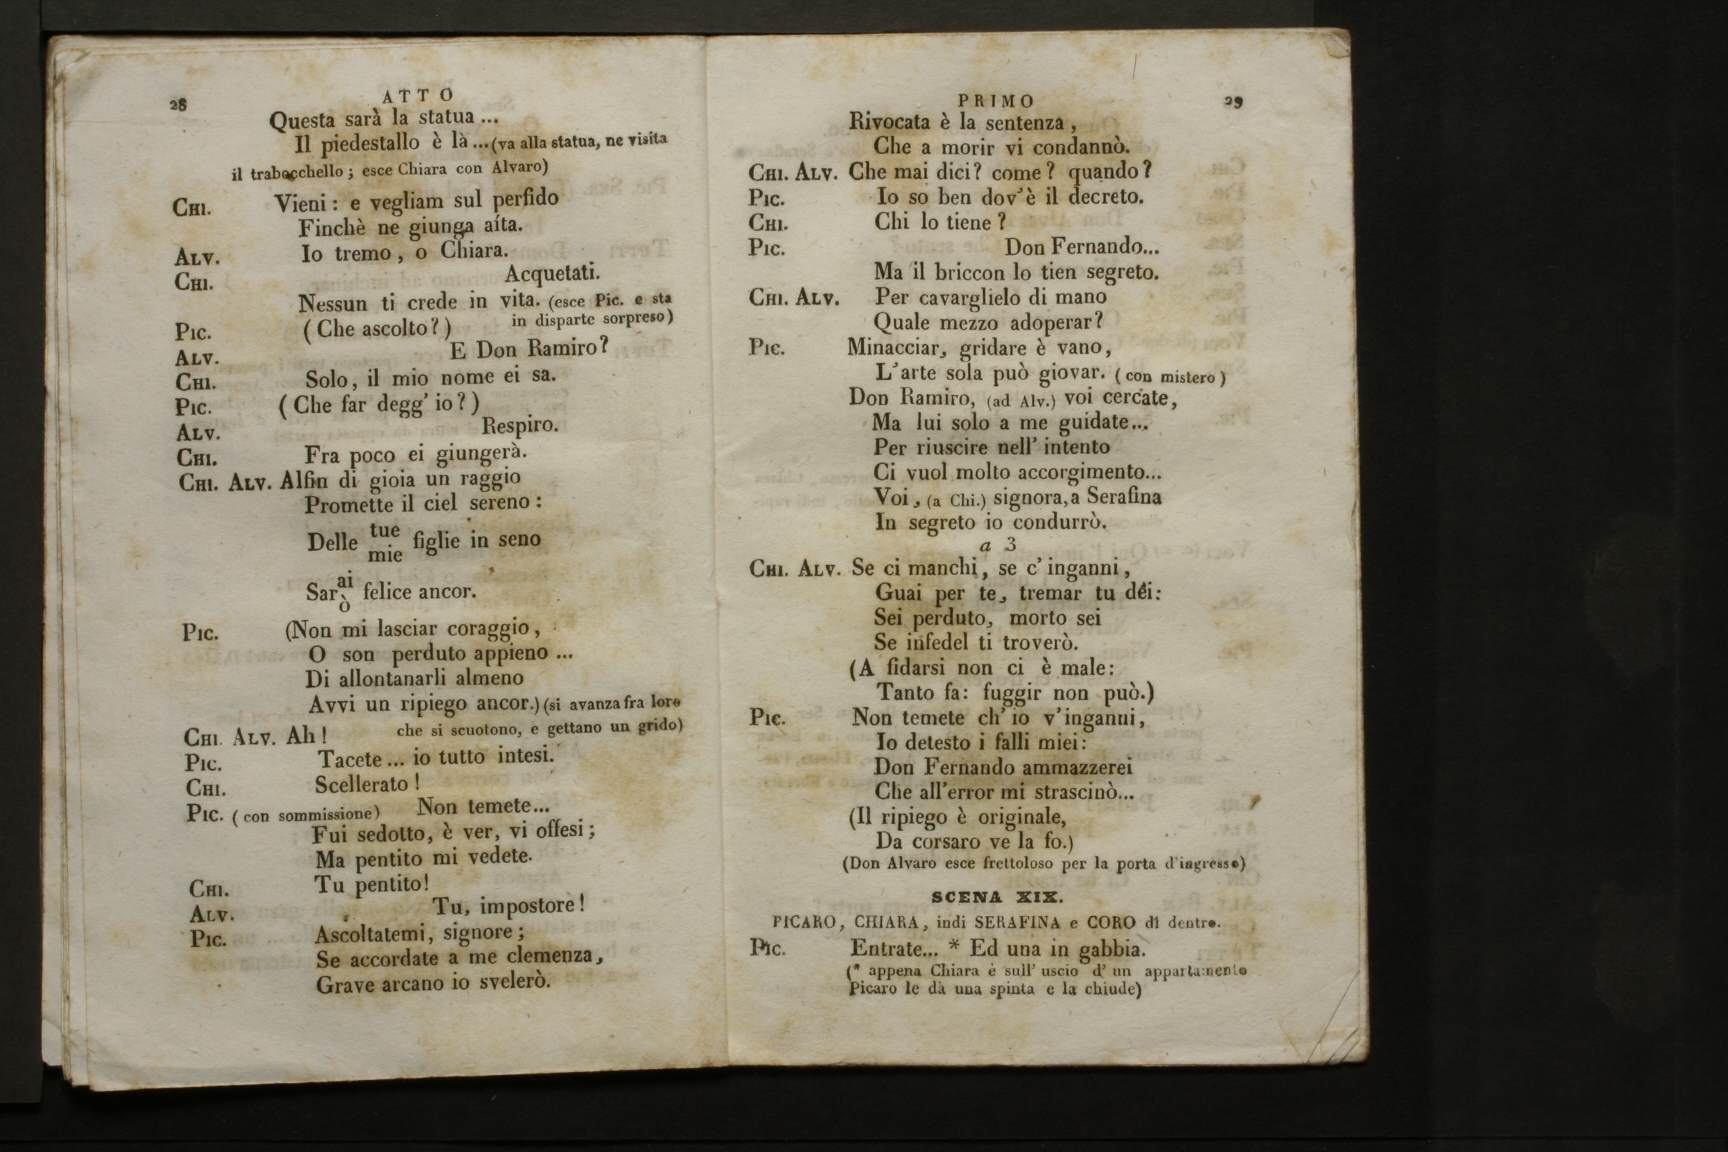 28
ATTO
Questa sarà la statua ...
Il piedestallo è là ... (va alla statua, ne visita
il trabocchello ; esce Chiara con Alvaro)
CHI. Vieni : e vegliam sul perfido
Finchè ne giunga aíta.
ALV. Io tremo, o Chiara.
CHI. Acquetati.
Nessun ti crede in vita. (esce Pic. e sta
in disparte sorpreso)
PIC. (Che ascolto?)
ALV. E Don Ramiro?
CHI. Solo, il mio nome ei sa.
PIC. (Che far degg' io?)
ALV. Respiro.
CHI. Fra poco ei giungerà.
CHI. ALV. Alfin di gioia un raggio
Promette il ciel sereno :
Delle tue
mie figlie in seno
Sarai
ò felice ancor.
PIC. (Non mi lasciar coraggio,
O son perduto appieno ...
Di allontanarli almeno
Avvi un ripiego ancor.) (si avanza fra loro
che si scuotono, e gettano un grido)
CHI. ALV. Ah!
PIC. Tacete ... io tutto intesi.
CHI. Scellerato!
PIC. (con sommissione) Non temete...
Fui sedotto, è ver, vi offesi;
Ma pentito mi vedete.
CHI. Tu pentito!
ALV. Tu, impostore!
PIC. Ascoltatemi, signore;
Se accordate a me clemenza,
Grave arcano io svelerò.
PRIMO
29
Rivocata è la sentenza,
Che a morir vi condannò.
CHI. ALV. Che mai dici? come? quando?
PIC. Io so ben dov'è il decreto.
CHI. Chi lo tiene?
PIC. Don Fernando...
Ma il briccon lo tien segreto.
CHI. ALV. Per cavarglielo di mano
Quale mezzo adoperar?
PIC. Minacciar, gridare è vano,
L'arte sola può giovar. (con mistero)
Don Ramiro, (ad Alv.) voi cercate,
Ma lui solo a me guidate...
Per riuscire nell' intento
Ci vuol molto accorgimento...
Voi, (a Chi.) signora, a Serafina
In segreto io condurrò.
a 3
CHI. ALV. Se ci manchi, se c' inganni,
Guai per te, tremar tu dei:
Sei perduto, morto sei
Se infedel ti troverò.
(A fidarsi non ci è male:
Tanto fa: fuggir non può.)
PIC. Non temete ch' io v'inganni,
Io detesto i falli miei:
Don Fernando ammazzerei
Che all'error mi strascinò...
(Il ripiego è originale,
Da corsaro ve la fo.)
(Don Alvaro esce frettoloso per la porta d'ingresso)
SCENA XIX.
PICARO, CHIARA, indi SERAFINA e CORO di dentro.
PIC. Entrate... * Ed una in gabbia.
(* appena Chiara è sull' uscio d' un appartamento
Picaro le dà una spinta e la chiude)